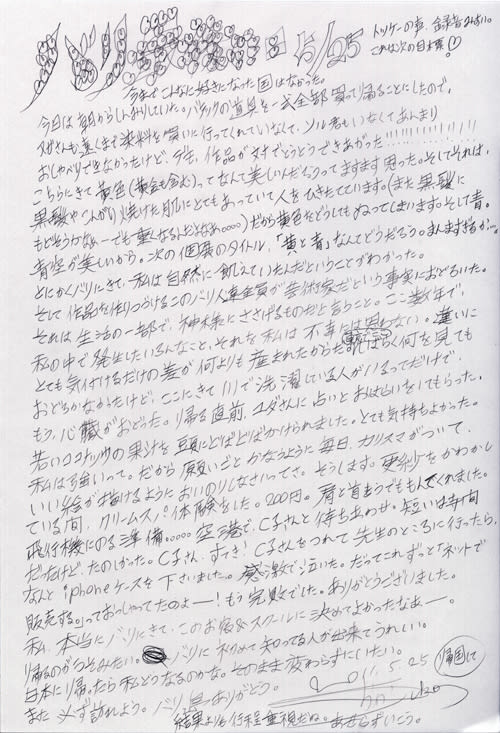 バリ 5/25
トッケーの声、録音したい。
これは次の日本展!
今までこんなに好きになった国はなかった。
今日は朝からしんみりしていた。バティックの道具を一式全部買って帰ることにしたので、
さんも遠くまで染料を買いに行ってくれていなくて、ソル君もいなくてあんまり
おしゃべりできなかったけど、デモ、作品がとうとうできあがった!!!!!!!!!!
こちらにきて黄色(黄金も含む)ってなんて美しいんだろうってますます思った。そしてそれは、
黒髪やこんがり焼けた肌にとてもあっていて人をひきたてています。(また黒髪に
もどそうかなぁーでも重くなるんだよなあ。。。。)だから黄色をどうしてもぬってしまいます。そして青。
青空が美しいから。次の個展のタイトル、「黄と青」なんてどうだろう。まんますぎるか…。
とにかくバリにきて、私は自然に飢えていたんだということがわかった。
そして作品を作りつづけるこのバリ人全員が芸術家だという事実におどろいた。
それは生活の一部で、神様にささげるものだと言うこと。ここ数年で、
私の中で発生したいろんなこと、それを私は不幸には思わない。違いに
とても気付けるだけの差が何よりも産まれたからだ。しばらく何を見ても
おどろかなかったけど、ここにきて川で洗濯している人がいるってだけで、
もう、心臓がおどった。帰る直前、ユダさんに占いとおはらいをしてもらった。
若いココナッツの果汁を頭にどばどばかけられました。とても気持ちよかった。
私は強いって。だから願いごとかなうように毎日、カリスマがついて、
いい絵が描けるようにおいのりしなさいってさ。そうします。更紗をかわかし
ている間、クリームスパ体験をした。200円。肩と首まうでももんでくれました。
飛行機にのる準備。。。。。空港で、C子さんと待ちあわせ。短いお時間
だったけど、たのしかった。C子さん、すてき!C子さんをつれて先生のところに行ったら、
なんとiphoneケースを下さいました。感激で泣いた。だってこれずっと「ネットで
販売する」っておっしゃってたのよー!もう完敗でした。ありがとうございました。
私、本当にバリにきて、このお教室スクールに決めてよかったなあー。
帰るのがうそみたい。バリに初めて知ってる人が出来てうれしい。
日本に帰ったら私どうなるのかな。そのまま変わらずにいたい。
また必ず訪れよう。バリ島ありがとう。
2011.5.25 帰国にて
結果よりも行程重視だね。あせらずいこう。